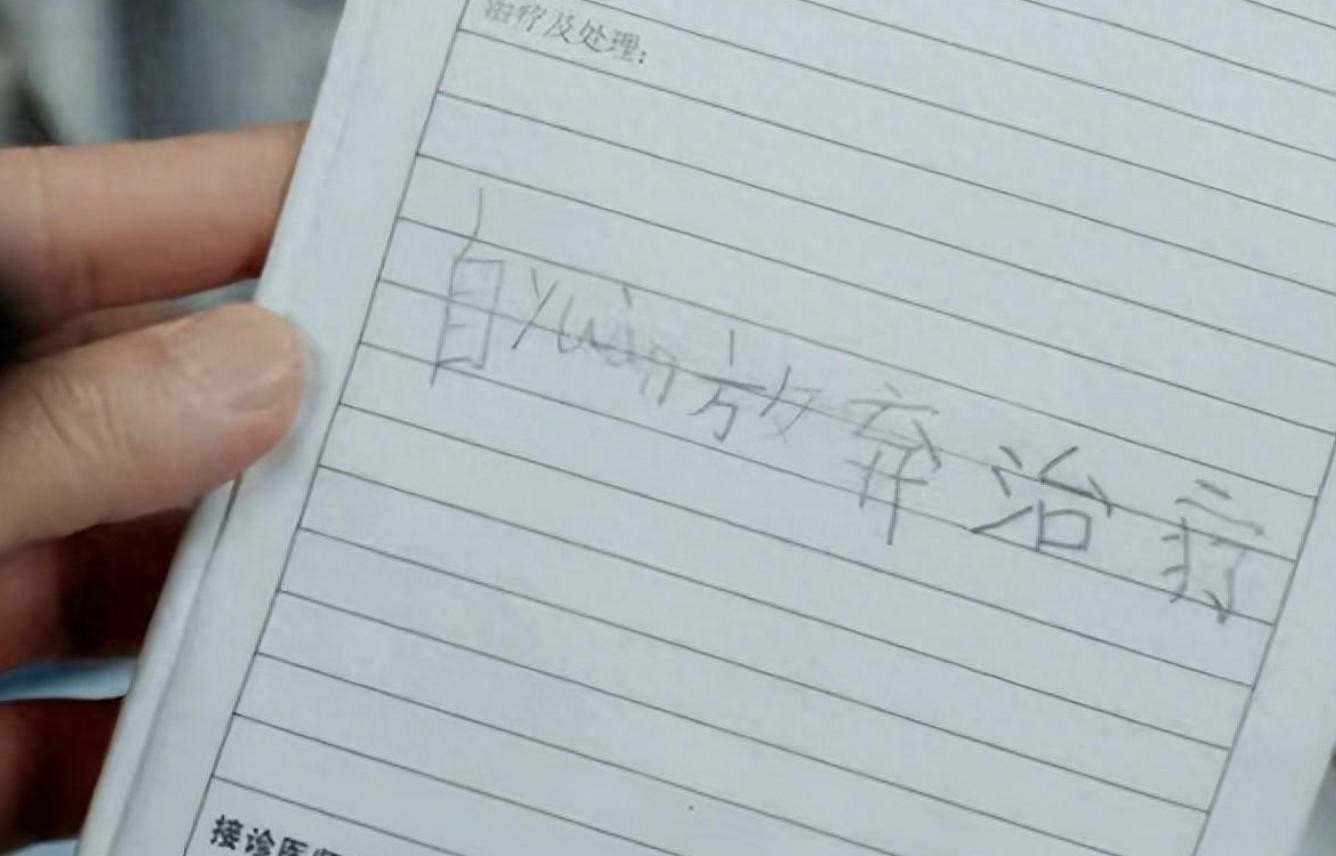 治疗及处理:
自yuàn放弃治疗
接诊医师